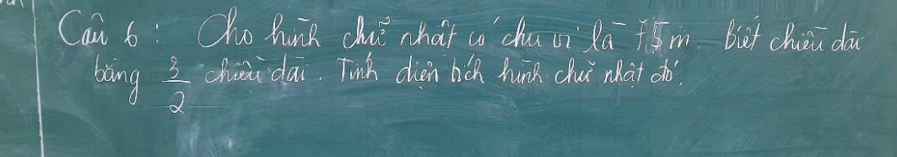 Câu 6 : Cho hình chữ nhật có chu vi là 75 m. biết chiều dài
bằng 3/2 chiều dài. Tính diện tích hình chữ nhật đó.